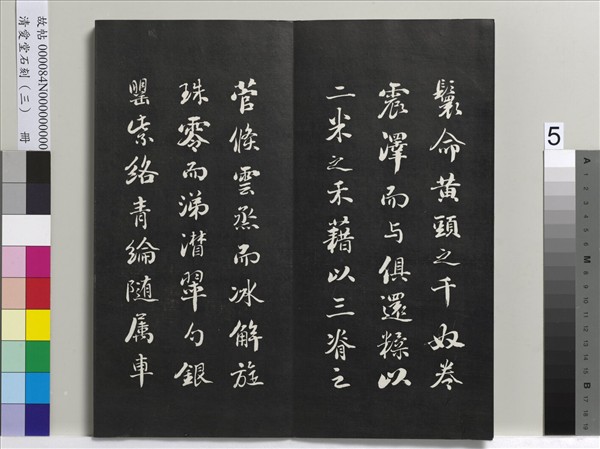 鬟命黄頭之千奴卷
震澤而与俱還糅以
二米之禾藉以三脊之
菅倏雲烝而冰解旋
珠零而涕潸翠勺銀
罌紫絡青綸随属車
故帖 000084N000000000
清愛堂石刻（三） 冊
5
A 1 2 3 4 5 6 M 8 9 10 11 12 13 14 15 B 17 18 19